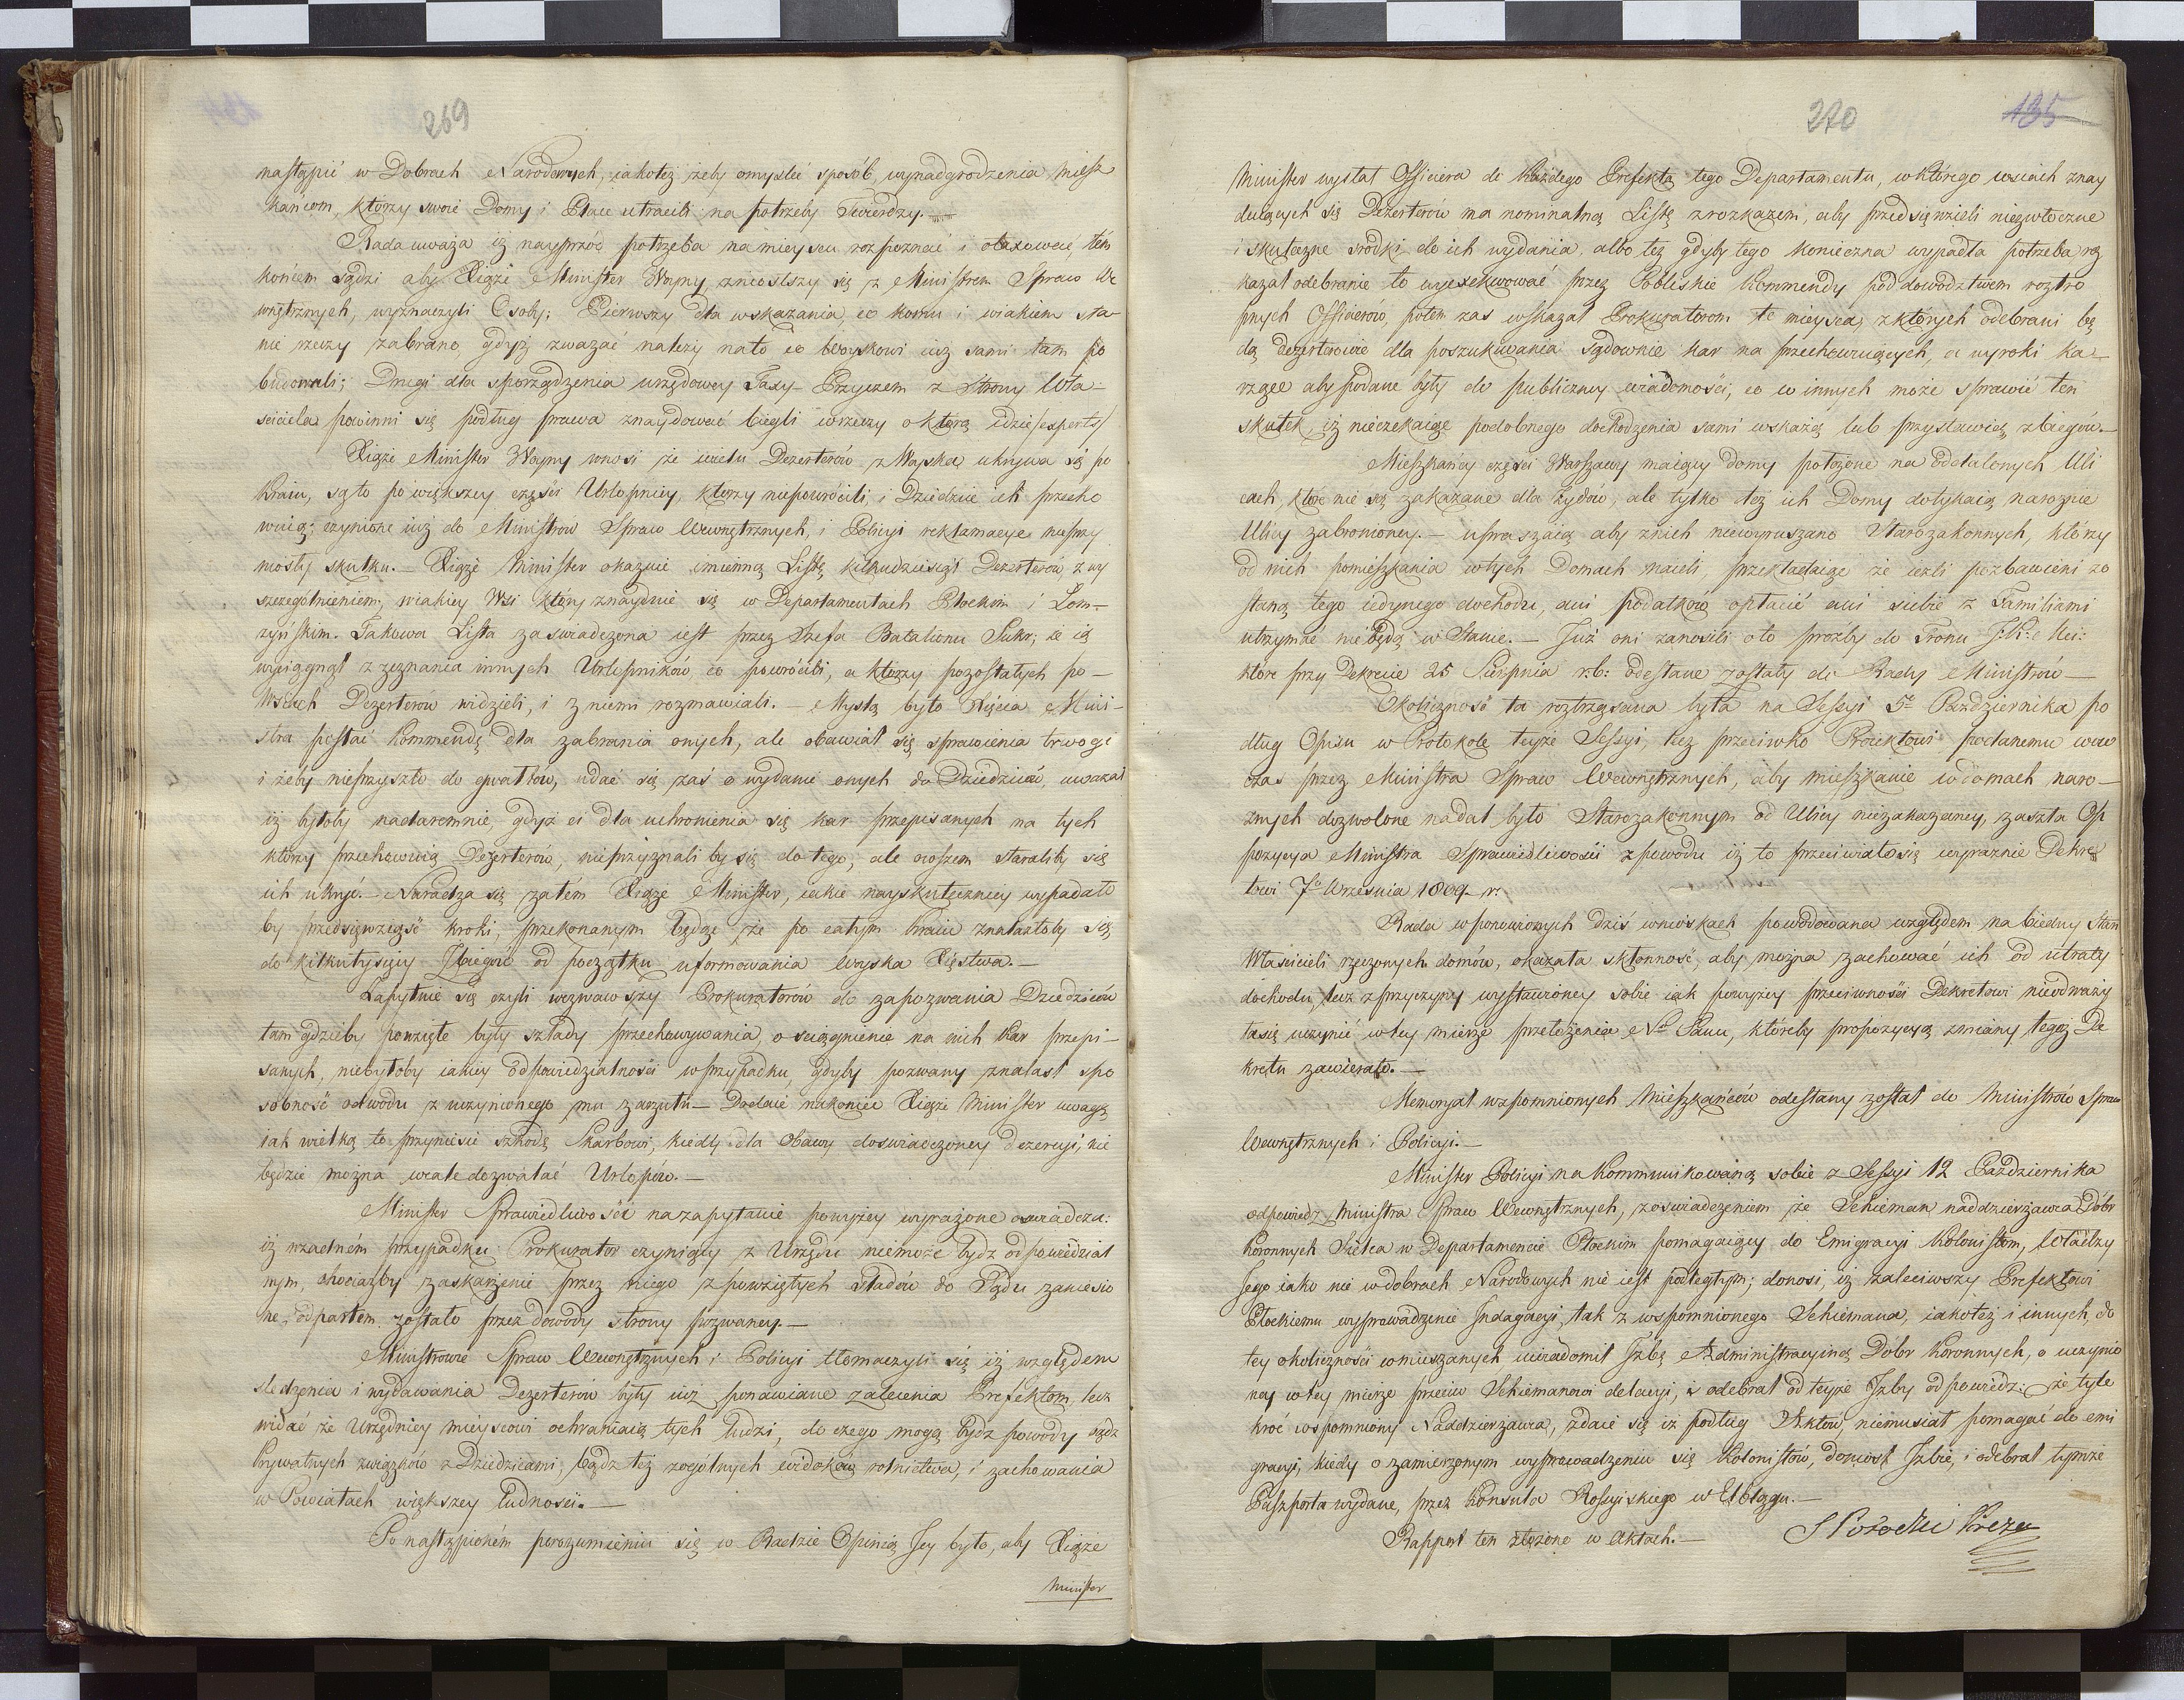 269
nastąpić w Dobrach Narodowych, iakoteż żeby omyslić sposób, wynadgrodzenia miesz
kańcom, ktorzy swoie Domy i Place utracili na potrzeby Twierdzy.—
Rada uważa iż nayprzód potrzeba na mieyscu rozpoznać i otaxować, tém
końcem sądzi aby Xiąże Minister Woyny zniosłszy się z Ministrem Spraw We
wnętrznych, wyznaczyli Osoby; Pierwszy dla wskazania, co komu i wiakiem sta-
nie rzeczy zabrano, gdyż zwazać należy nato co Woyskowi iuż sami tam po
budowali; Drugi dla sporządzenia urzędowey Taxy— Przyczem z Strony Wła-
sciciela powinni się podług prawa znaydować biegli w rzeczy o którą idzie /experts/
Xiąże Minister Woyny wnosi że wielu Dezerterów z Woyska ukrywa się po
Kraiu, są to po większey części Urlopnicy, ktorzy niepowrócili i Dziedzice ich przecho
wuią; czynione iuż do Ministrów Spraw Wewnętrznych, i Policyi reklamacye nieprzy
niosły skutku.— Xiąże Minister okazuie imienną Listę kilkudziesiąt Dezerterów z wy
szczególnieniem, wiakiey Wsi który znayduie się w Departamentach Płockim i Łom-
zyńskim. Takowa Lista zaswiadczona iest przez Szefa Batalionu Sukr; że ią
wyciągnął z zeznania innych Urlopników co powrócili, a ktorzy pozostałych po-
Wsiach Dezerterów widzieli, i z niemi rozmawiali.— Myslą było Xięcia Mini-
stra posłać Kommendę dla zabrania onych, ale obawiał się sprawienia trwogi
i żeby nieprzyszło do gwałtów, udać się zaś o wydanie onych do Dziedziców, uważał
iż byłoby nadaremnie, gdyż ci dla uchronienia się kar przepisanych na tych
ktorzy przechowuią Dezerterów, nieprzyznaliby się do tego, ale owszem staraliby się
ich ukryć.— Naradza się zatém Xiąże Minister, iakie nayskuteczniey wypadało
by przedsięwziąść kroki, przekonanym będąc że po całym Kraiu znalazłoby się
do kilkutysięcy Zbiegów od początku uformowania woyska Xięstwa.—
Zapytuie się czyli wezwawszy Prokuratorów do zapozwania Dziedziców
tam gdzieby powzięte były szlady przechowywania, o sciągnienie na nich kar przepi-
sanych, niebyłoby iakiey odpowiedzialności w przypadku, gdyby pozwany znalasł spo
sobność odwodu z uczynionego mu zarzutu— Dodaie nakoniec Xiąże Minister uwagę
iak wielką to przyniesie szkodę Skarbowi, kiedy dla obawy doswiadczoney dezercyi, nie
będzie można wcale dozwalać Urlopów.—
Minister Sprawiedliwości na zapytanie powyżey wyrażone oswiadcza:
iż w żadném przypadku Prokurator czyniący z Urzędu niemoże bydz odpowiedzial
nym, chociażby zaskarżenie przez niego z powziętych sladów do Sądu zaniesio
ne, odpartem zostało przez dowody strony pozwaney.—
Ministrowie Spraw Wewnętrznych i Policyi tłomaczyli się iż względem
sledzenia i wydawania Dezerterów były iuż ponawiane zalecenia Prefektom, lecz
widać że Urzędnicy mieyscowi ochraniaią tych ludzi, do czego mogą bydz powody bądz
Prywatnych związków z Dziedzicami, bądz też zogólnych widoków rolnictwa, i zachowania
w Powiatach większey ludności.—
Po nastąpioném porozumieniu się w Radzie Opinią Jey było, aby Xiąże
Minister
270
135
Minister wysłał Officiera do każdego Prefekta tego Departamentu, w którego wsiach znay
duiących się Dezerterów ma nominalną Listę z rozkazem, aby przedsięwzieli niezwłoczne
i skuteczne srodki do ich wydania, albo też gdyby tego konieczna wypadła potrzeba, roz
kazał odebranie to wyexekwować przez Pobliskie Kommendy pod dowodztwem roztro
pnych Officierów, potem zas wskazał Prokuratorom te mieysca, z których odebrani bę
dą Dezerterowie dla poszukiwania sądownie kar na przechowuiących, a wyroki ka-
rzące aby podane były do publiczney wiadomości, co w innych może sprawić ten
skutek, iż nieczekaiąc podobnego dochodzenia sami wskażą lub przystawią zbiegów.—
Mieszkańcy części Warszawy maiący domy położone na oddalonych Uli
cach, które nie są zakazane dla Żydów, ale tylko też ich Domy dotykaią naroznie
Ulicy zabronioney.— upraszaią aby znich niewyruszano Starozakonnych, którzy
od nich pomieszkania w tych Domach maieli, przekładaiąc że ieżli pozbawieni zo
staną tego iedynego dochodu, ani podatków opłacić ani siebie z Familiami
utrzymać nie będą w Stanie.— Już oni zanosili o to prozby do Tronu J:K: Mci:
które przy Dekrecie 25 Sierpnia r:b: odesłane zostały do Rady Ministrów—
Okoliczność ta roztrząsana była na Sessyi 5o Pazdziernika po
dług Opisu w Protokole teyże Sessyi, lecz przeciwko Proiektowi podanemu wów
czas przez Ministra Spraw Wewnętrznych, aby mieszkanie w domach naro-
znych dozwolone nadal było Starozakonnym od Ulicy niezakazaney, zaszła Op
pozycya Ministra Sprawiedliwości z powodu iż to przeciwiało się wyraznie Dekre
towi 7o Wrzesnia 1809. r.
Rada w ponowionych dziś wnioskach powodowana względem na biedny Stan
Właścicieli rzeczonych domów, okazała skłonność, aby można zachować ich od utraty
dochodu, lecz z przyczyny wystawioney sobie iak powyżey przeciwności Dekretowi nieodważy
ła się uczynić w tey mierze przełożenie N. Panu, któreby propozycyą zmiany tegoż De
kretu zawierało.—
Memoryał wspomnionych Mieszkańców odesłany został do Ministrów Spraw
Wewnętrznych i Policyi.—
Minister Policyi na Kommunikowaną sobie z Sessyi 12 Pazdziernika
odpowiedz Ministra Spraw Wewnętrznych, z oswiadczeniem że Schieman naddzierzawca Dóbr
Koronnych Szelca w Departamencie Płockim pomagaiący do Emigracyi Kolonistom, Władzy
Jego iako nie w dobrach Narodowych nie iest podległym; donosi, iż zaleciwszy Prefektowi
Płockiemu wyprowadzenie Indagacyi, tak z wspomnionego Schiemana, iakoteż i innych, do
tey okoliczności wmieszanych uwiadomił Izbę Administracyiną Dóbr Koronnych, o uczynio
ney w tey mierze przeciw Schiemanowi delacyi, i odebrał od teyże Izby odpowiedz: że tyle
kroć wspomniony Naddzierzawca, zdaie się iż podług Aktów, niemusiał pomagać do emi
gracyi, kiedy o zamierzonym wyprowadzeniu się Kolonistów, doniosł Izbie, i odebrał tymże
Paszporta wydane, przez Konsula Rossyiskiego w Elblągu.—
Rapport ten złożono w Aktach.—
S Potocki Prezes